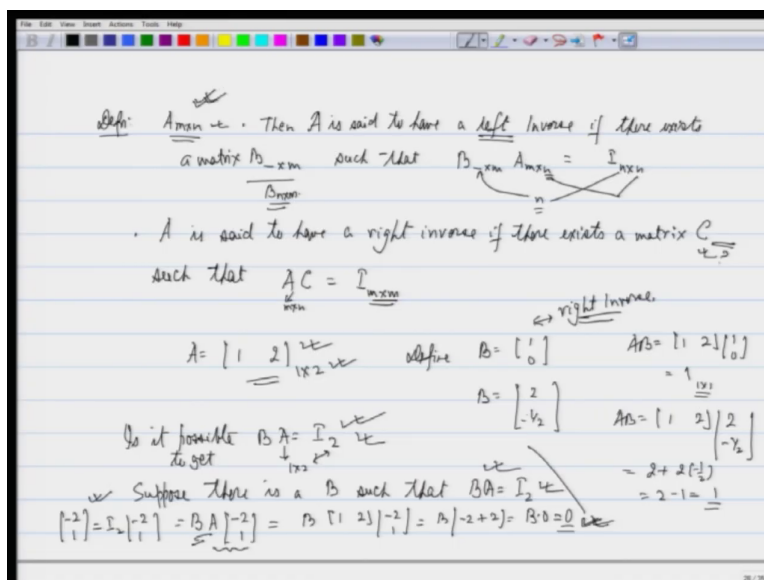 File Edit View Insert Actions Tools Help
Defn: A_{m×n}. Then A is said to have a left Inverse if there exists
a matrix B_{_×m} such that B_{_×m} A_{m×n} = I_{n×n}
B_{n×m} n
. A is said to have a right inverse if there exists a matrix C ?
such that A C = I_{m×m}
m×n
↔ right Inverse
A = [1 2]_{1×2} Define B = [1 0] AB = [1 2] [1 0]
= 1_{1×1}
B = [2 -1/2] AB = [1 2] [2 -1/2]
Is it possible B A = I_2
to get 1×2
= 2 + 2(-1/2)
= 2 - 1 = 1
Suppose there is a B such that BA = I_2
[-2 1] = I_2 [-2 1] = B A [-2 1] = B [1 2] [-2 1] = B [-2+2] = B·0 = 0